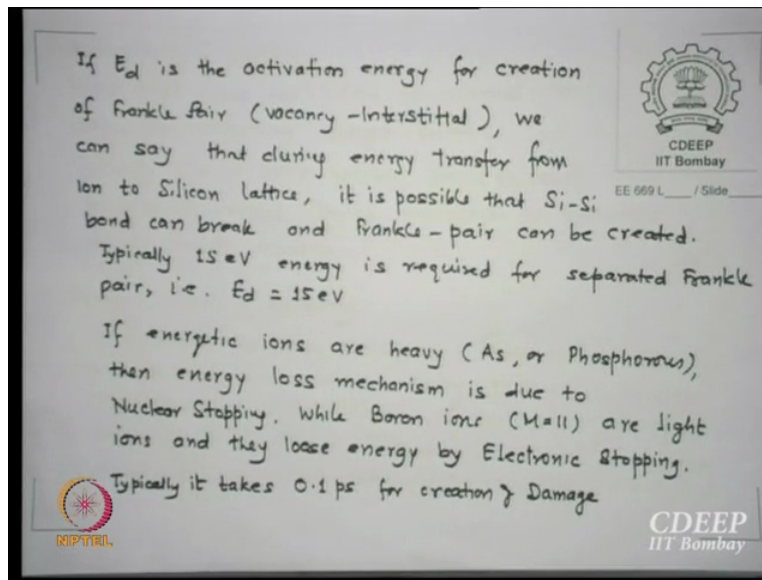 If Ed is the activation energy for creation
of Frankle Pair (vacancy - Interstitial), we
can say that during energy transfer from
Ion to Silicon lattice, it is possible that Si-Si
bond can break and Frankle-pair can be created.
Typically 15 eV energy is required for separated Frankle
pair, i.e. Ed = 15 eV
If energetic ions are heavy (As, or Phosphorous),
then energy loss mechanism is due to
Nuclear Stopping. While Boron ions (M=11) are light
ions and they loose energy by Electronic Stopping.
Typically it takes 0.1 ps for creation of Damage
CDEEP
IIT Bombay
EE 669 L___ / Slide___
NPTEL
CDEEP
IIT Bombay